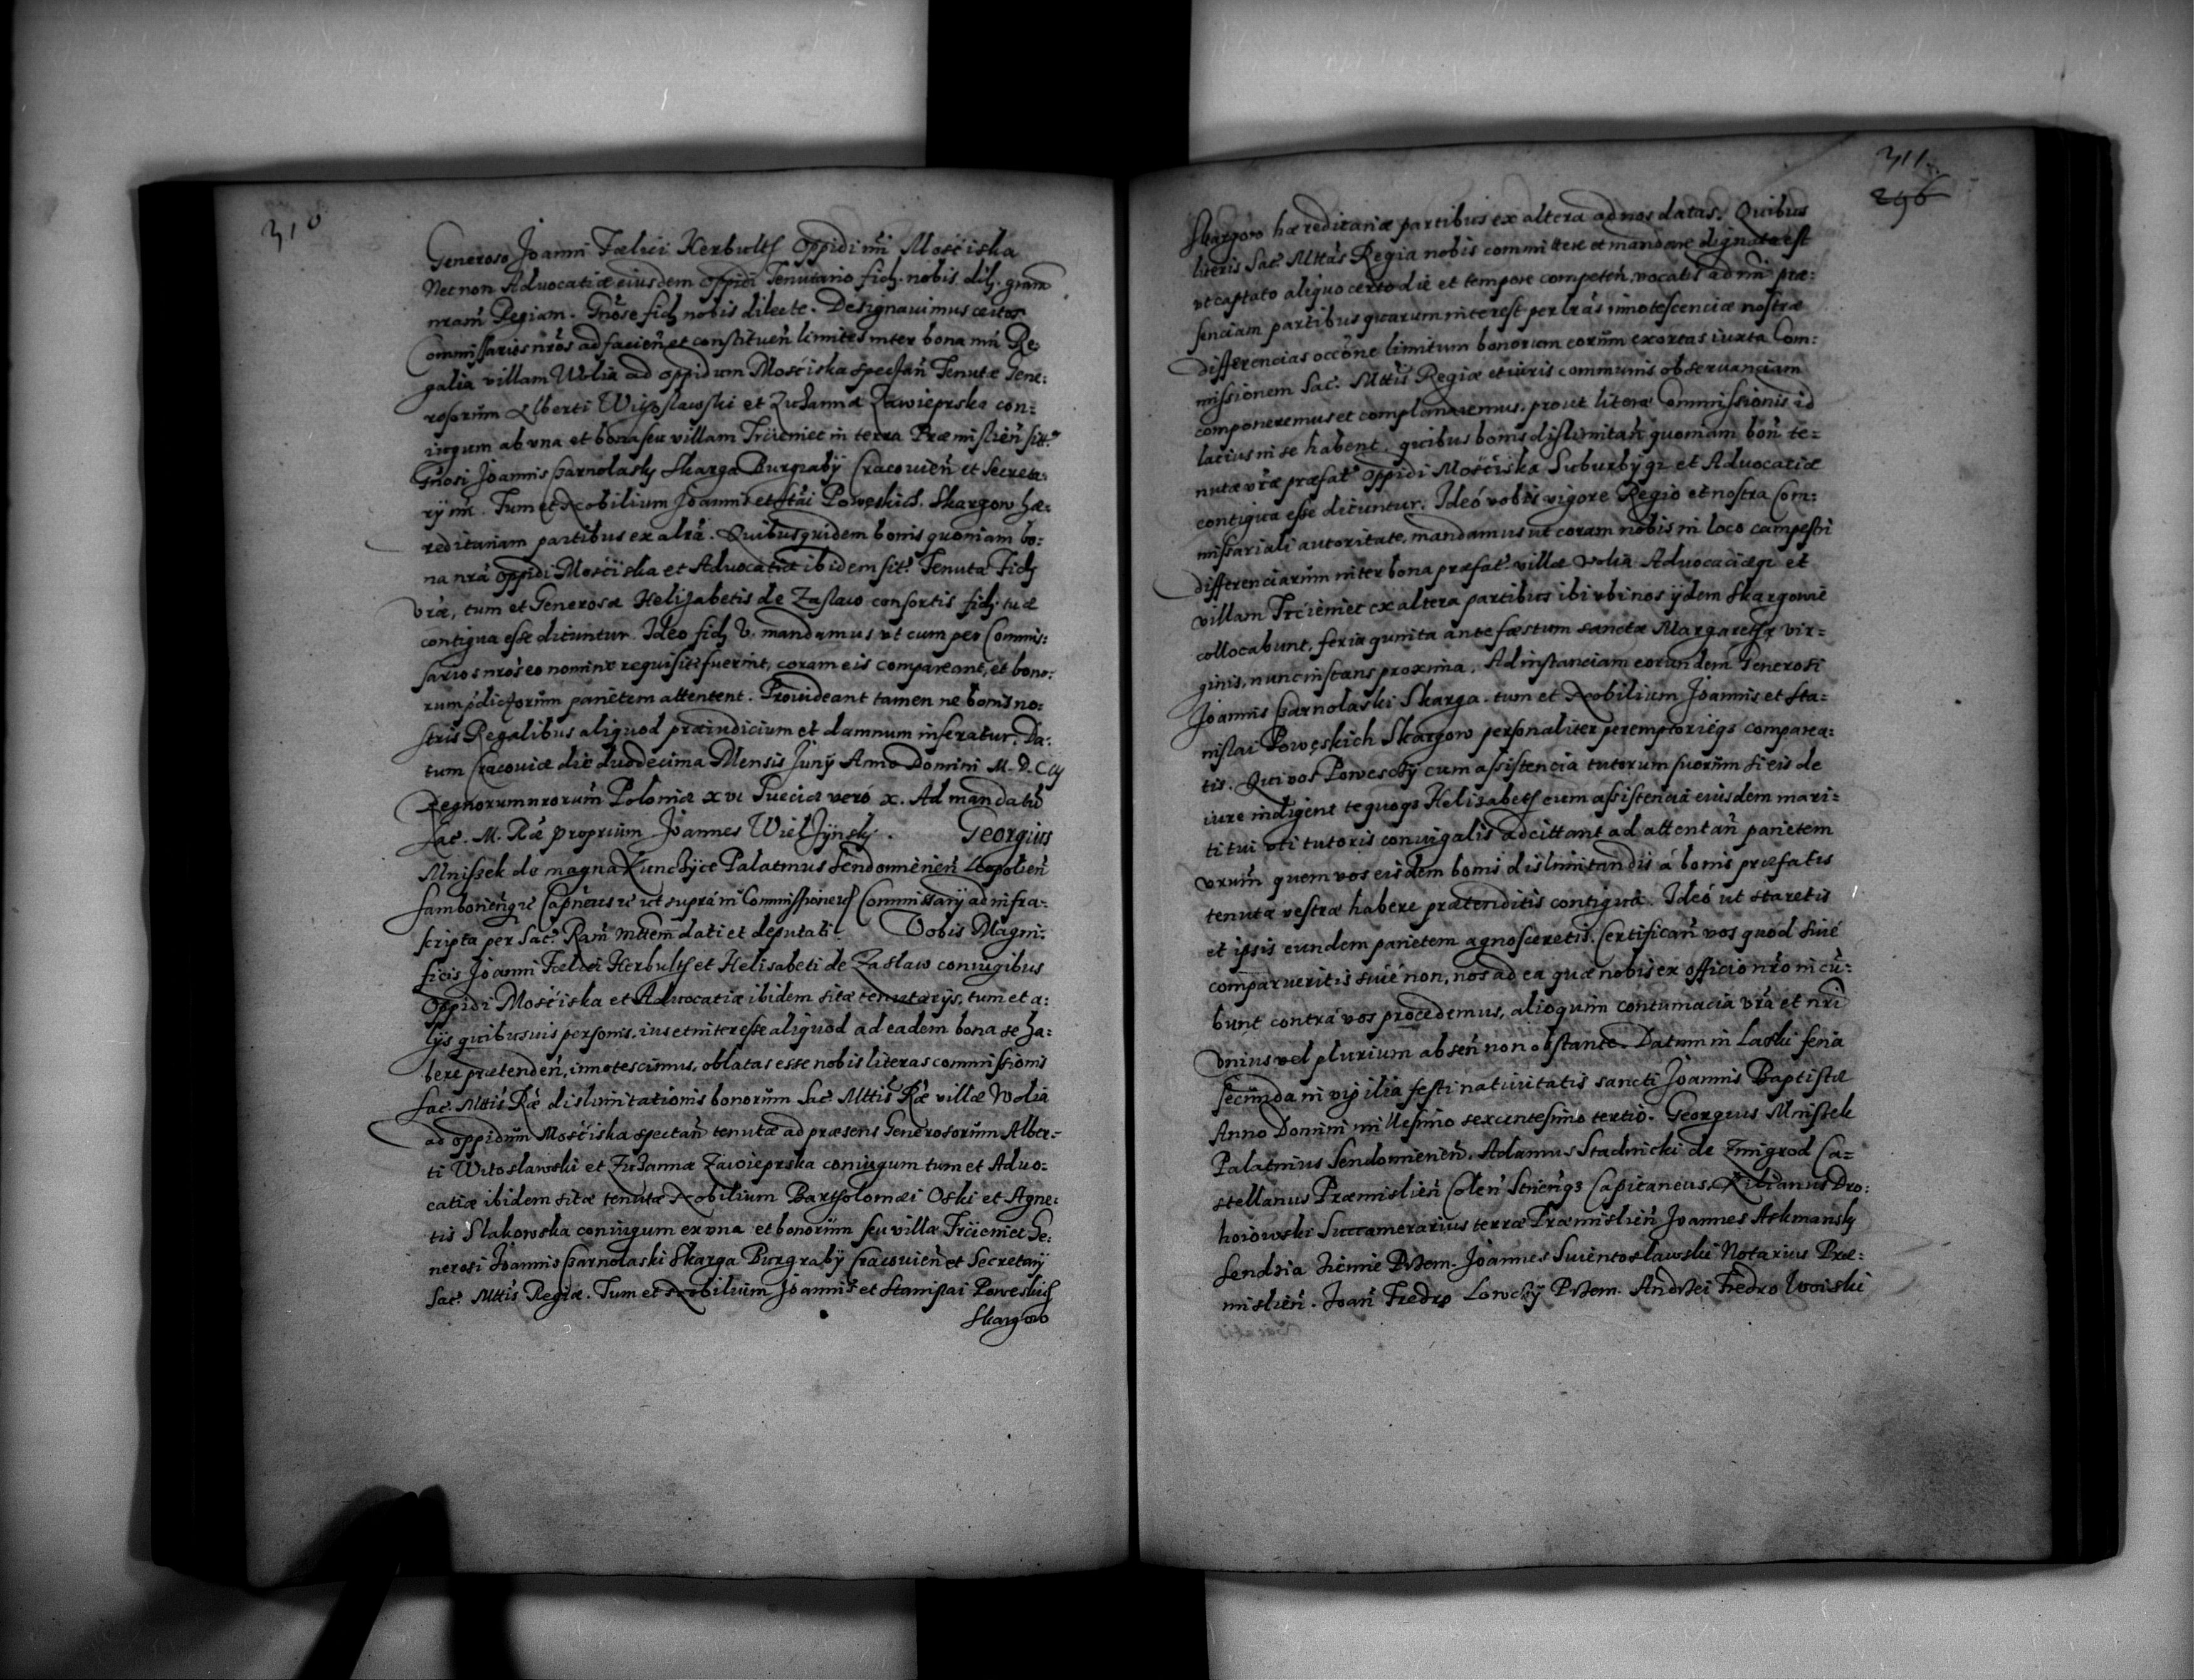 310
Generoso Joanni Fœlici Herbulth Oppidi nri Mościska
Necnon Advocatiæ eiusdem oppidi Tenutario fidͤ. nobis dilͤ. gram
nram̄ Regiam. Gnose fidͤ nobis dilecte. Designauimus certos
Commissarios nros ad facien̄ et constituen̄ limites inter bona nra Re:
galia villam Wolia ad oppidum Mościska spectan̄ Tenutæ Gene:
rosorum Alberti Witosławski et Zuzannæ Zawieprska con:
iugum ab vna et bona seu villam Trcieniec in terra Præmislien̄ sitt.
Gnosi Joannis Czarnolasky Skarga Burgrabÿ Cracovien̄ et Secreta:
rÿ nri. Tum et Nobilium Joannis et Stāi Poweskich Skargow hæ:
reditariam partibus ex altrā. Quibusquidem bonis quoniam bo:
na nrā oppidi Mościska et Advocatiæ ibidem sitͤ. Tenutæ Fidͤ
Vræ, tum et Generosæ Helizabetis de Zasław consortis fidͤ. tuæ
contigua esse dicuntur. Ideo fidͤ V. mandamus vt cum per Commis:
sarios nros eo nomine requisiti fuerint, coram eis compareant, et bono:
rum p̄dictorum parietem attentent. Prouideant tamen ne bonis no:
stris Regalibus aliquod præiudicium et damnum inferatur. Da:
tum Cracoviæ die duodecima Mensis Junÿ Anno Domini M.D.C iij
Regnorum nrorum Poloniæ xvi Sueciæ verò x. Ad mandatū
Sacͤ. M. Ræ proprium Joannes Wielzÿnsky. Georgius
Mniszek de magna Kunczÿce Palatinus Sendomirien̄ Leopolien̄
Samborien̄qe Capneus ut suprà in Commissioneis Commissarÿ ad infra:
scripta per Sacͤ. Ram̄ Mttem̄ dati et deputati. Vobis Magni:
ficis Joanni Fœlici Herbulth et Helisabeti de Zasław coniugibus
Oppidi Mościska et Advocatiæ ibidem sitæ tenutarÿs, tum et a:
lÿs quibusuis personis, ius et interesse aliquod ad eadem bona se ha:
bere prætenden̄, innotescimus, oblatas esse nobis literas commissionis
Sacͤ. Mttis Ræ dislimitationis bonorum Sacͤ Mttis Ræ villæ Wolia
ad oppidum Mościska spectan̄ tenutæ ad præsens Generosorum Alber:
ti Witosławski et Zuzannæ Zawieprska coniugum tum et Aduo:
catiæ ibidem sitæ tenutæ Nobilium Bartholomæi Oski et Agne:
tis Slakowska coniugum ex vna et bonorum seu villæ Trcieniec Ge:
nerosi Joannis Czarnolaski Skarga Burgrabÿ Cracovien̄ et Secretarÿ
Sacͤ. Mttis Regiæ. Tum et Nobilium Joannis et Stanislai Poweskich
Skargow
311.
296
Skargow hæreditariæ partibus ex altera ad nos datas. Quibus
literis Sacͤ. Mttas Regia nobis committere et mandare dignata est
vt captato aliquo certo die et tempore competen̄, vocatis ad nri præ:
senciam partibus quarum interest per lras innotescenciæ nostræ
differencias occone limitum bonorum eorum exortas iuxta Com:
missionem Sacͤ. Mttis Regiæ et iuris communis obseruanciam
componeremus et complanaremus, prout literæ Commissionis id
latius in se habent, quibus bonis dislimitan̄ quoniam bon̄ te:
nutæ vræ præfatͤ oppidi Mościska Suburbÿqe et Advocatiæ
contigua esse dicuntur. Ideò vobis vigore Regio et nostra Com:
missariali autoritate, mandamus ut coram nobis in loco campestri
differenciarum inter bona præfatͤ villæ Wolia Advocaciæqe et
villam Trcieniec ex altera partibus ibi vbi nos ÿdem Skargowie
collocabunt, feria quinta ante fæstum sanctæ Margarethæ vir:
ginis, nunc instans proxima. Ad instanciam eorundem Generosi
Joannis Czarnolaski Skarga. tum et Nobilium Joannis et Sta:
nislai Poweskich Skargow personaliter peremptorieqs comparea:
tis. Qui vos Powescÿ cum assistencia tutorum suorum si eis de
iure indigent te quoqs Helizabeth cum assistencia eiusdem mari:
ti tui vti tutoris coniugalis adcittant ad attentan̄ parietem
vrum̄ quem vos eisdem bonis dislimitandis à bonis præfatis
tenutæ vestræ habere prætenditis contigua. Ideò ut staretis
et ipsis eundem parietem agnosceretis. Certifican̄ vos quod siuè
comparueritis siuè non, nos ad ea quæ nobis ex officio nro incū:
bunt contrà vos procedemus, alioquim contumacia vrā et nri
vnius vel plurium absen̄ non obstante. Datum in Laski feria
secunda in vigilia festi natiuitatis sancti Joannis Baptistæ
Anno Domini millesimo sexcentesimo tertio. Georgius Mnissek
Palatinus Sendomirien̄. Adamus Stadnicki de Zmigrod Ca:
stellanus Præmislien̄ Capitaneus. Kilianus Dro:
hoiowski Succamerarius terræ Præmislien̄ Joannes Askmansky
Sendzia ziemie Przem. Joannes Swientosławski Notarius Præ:
mislien̄. Joan̄ Fredro Lowczÿ Przem. Andrzei Fredro Woiski